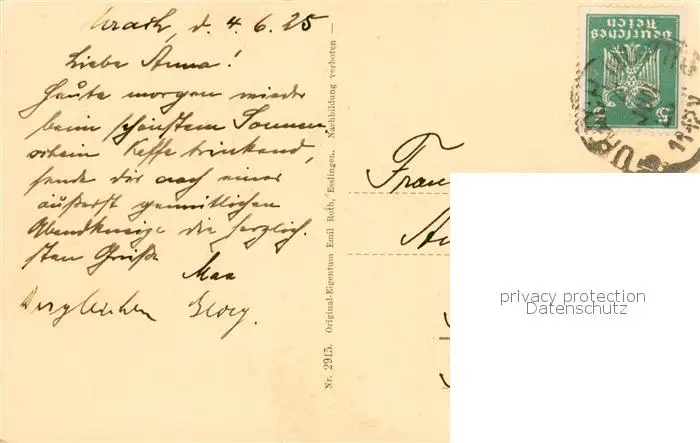 Urach, d. 4.6.25
Liebe Anna!
Heute morgen wieder
beim schönstem Sonnen-
schein Kaffe trinkend,
sende dir nach einer
äußerst gemütlichen
die herzlich-
sten Grüße
Max
Georg.
Nr. 2915. Original-Eigentum Emil Roth, Esslingen. Nachbildung verboten —
Frau
Deutsches
Reich
5
privacy protection
Datenschutz